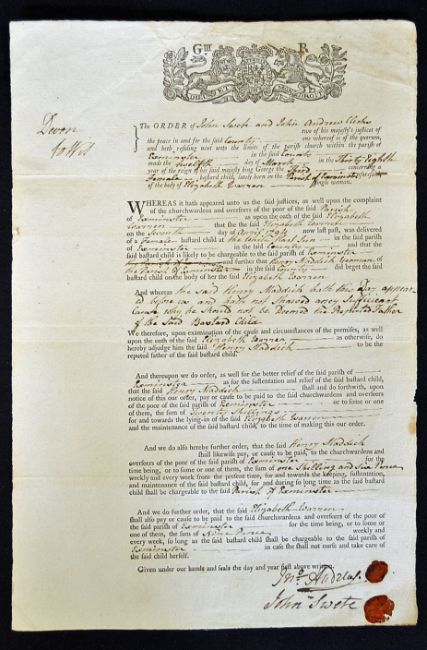 G III R
Devon
to Wit
The ORDER of John Swete and John Andrew Clerks
two of his majesty's justices of
the peace in and for the said County one whereof is of the quorum,
and both residing next unto the limits of the parish church within the parish of
Exminster in the said County
made the Twelfth day of March in the Thirty Eighth
year of the reign of his said majesty king George the Third concerning a
Female bastard child, lately born in the Parish of Exminster
of the body of Elizabeth Warren single woman.
WHEREAS it hath appeared unto us the said justices, as well upon the complaint
of the churchwardens and overseers of the poor of the said Parish
of Exminster as upon the oath of the said Elizabeth
Warren that she the said Elizabeth Warren
on the Seventh day of now last past, was delivered
of a Female bastard child at in the said parish
of Exminster in the said County and that the
said bastard child is likely to be chargeable to the said parish of Exminster
and further that Henry Maddick Yeoman of
the Parish of Exminster in the said County did beget the said
bastard child on the body of her the said Elizabeth Warren
And whereas the said Henry Maddick hath this Day appear
ed before us and hath not shewed any sufficient
Cause why he should not be Deemed the Reputed Father
of the said Bastard Child
We therefore, upon examination of the cause and circumstances of the premises, as well
upon the oath of the said Elizabeth Warren as otherwise, do
hereby adjudge him the said Henry Maddick to be the
reputed father of the said bastard child.
And thereupon we do order, as well for the better relief of the said parish of
Exminster as for the sustentation and relief of the said bastard child,
that the said Henry Maddick shall and do forthwith, upon
notice of this our order, pay or cause to be paid to the said churchwardens and overseers
of the poor of the said parish of Exminster or to some or one
of them, the sum of Twenty Shillings
for and towards the lying-in of the said Elizabeth Warren
and the maintenance of the said bastard child, to the time of making this our order.
And we do also hereby further order, that the said Henry Maddick
shall likewise pay, or cause to be paid, to the churchwardens and
overseers of the poor of the said parish of Exminster for the
time being, or to some or one of them, the sum of one Shilling and Six Pence
weekly and every week from the present time, for and towards the keeping, sustentation,
and maintenance of the said bastard child, for and during so long time as the said bastard
child shall be chargeable to the said Parish of Exminster
And we do further order, that the said Elizabeth Warren
shall also pay or cause to be paid to the churchwardens and overseers of the poor of
the said parish of Exminster for the time being, or to some or
one of them, the sum of Nine Pence weekly and
every week, so long as the said bastard child shall be chargeable to the said parish of
Exminster in case she shall not nurse and take care of
the said child herself.
Given under our hands and seals the day and year first above written.
Jno. Andrew
John Swete